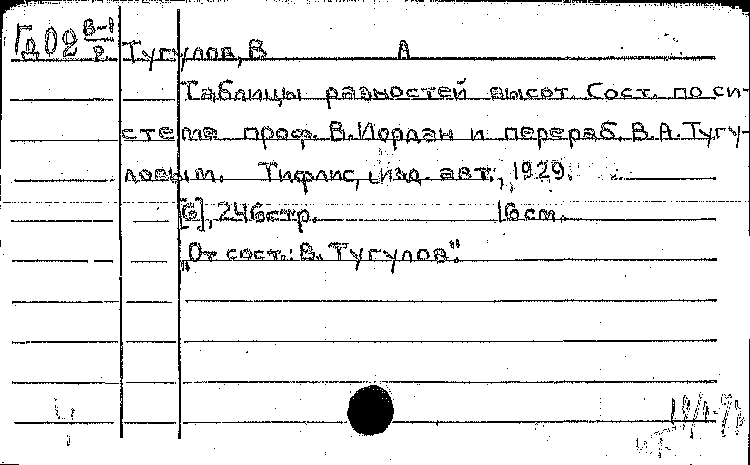 Гд02 В-1/2. Тугулов, В А
Таблицы разностей высот. Сост. по си-
стеме проф. В. Иордан и перераб. В. А. Тугу-
ловым. Тифлис, изд. авт., 1929.
[6], 246 стр. 16 см.
„От сост.: В. Тугулов".